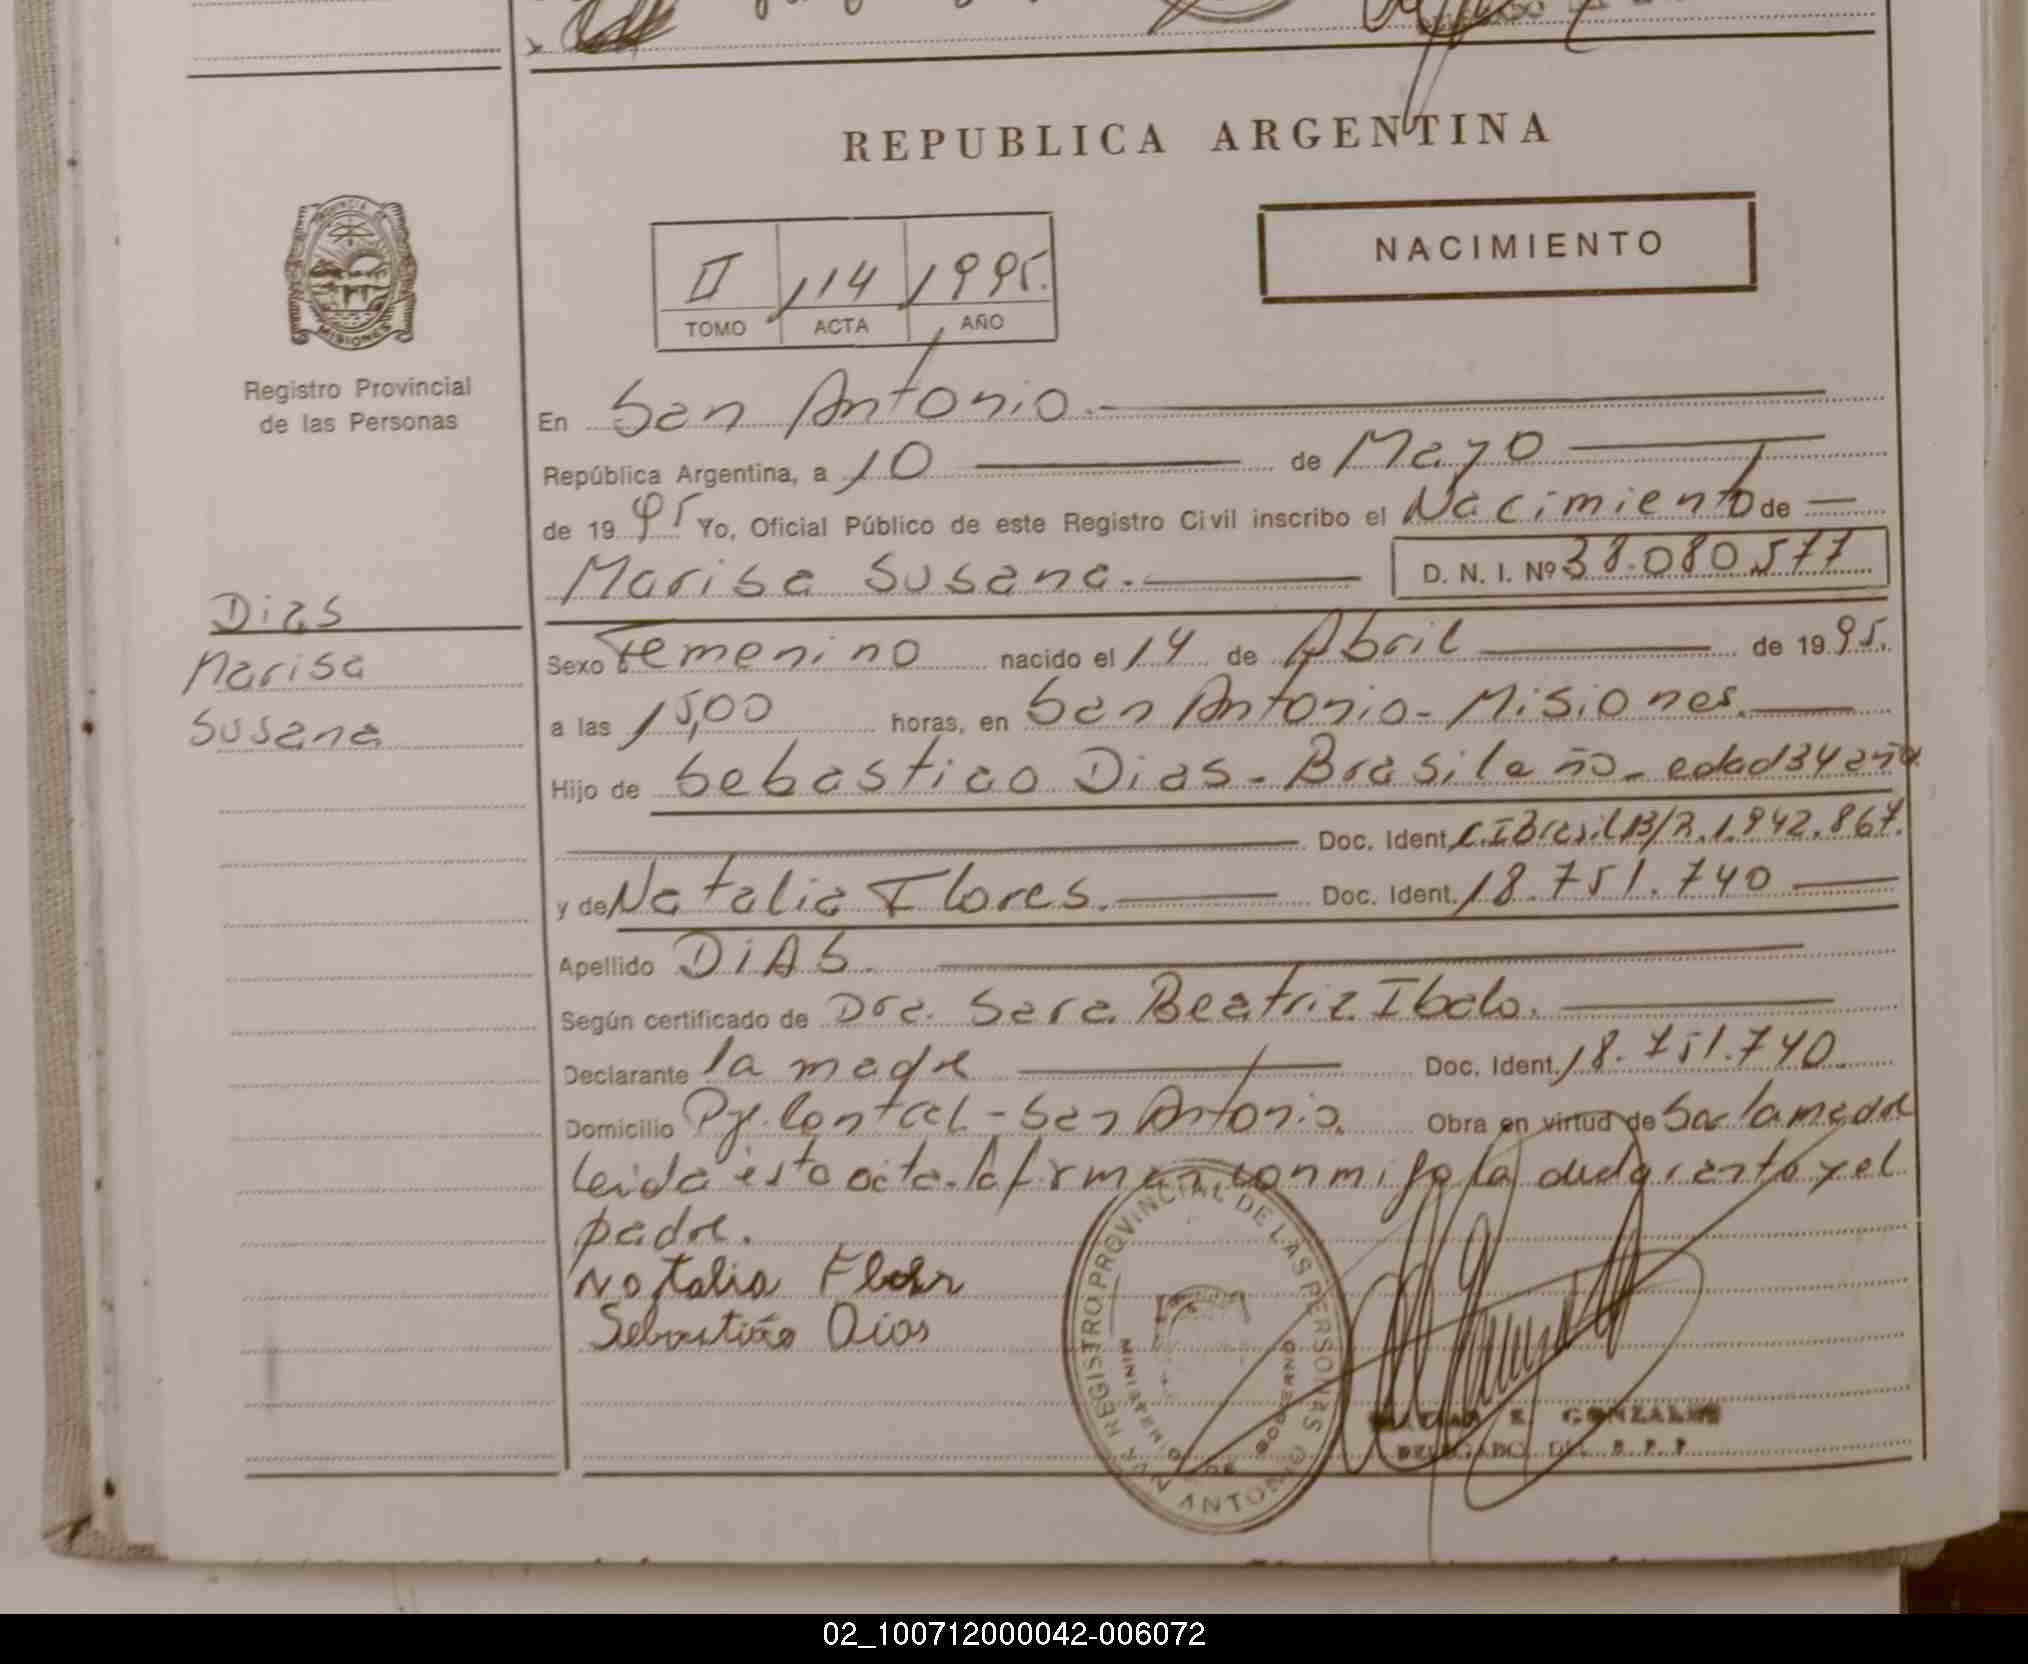 REPUBLICA ARGENTINA
PROVINCIA DE
MISIONES
Registro Provincial
de las Personas
II 114 1995.
TOMO ACTA AÑO
NACIMIENTO
En San Antonio.-
República Argentina, a 10 de Mayo
de 19 95 Yo, Oficial Público de este Registro Civil inscribo el Nacimiento de
Marisa Susana. D. N. I. Nº 38.080.577
Dias
Marisa
Susana
Sexo Femenino nacido el 14 de Abril de 19 95.
a las 15,00 horas, en San Antonio - Misiones.
Hijo de Sebastiao Dias - Brasileño - edad 34 años
Doc. Ident. C.I Brasil 13/R.1.942.867.
y de Natalia Flores. Doc. Ident. 18.751.740
Apellido DIAS.
Según certificado de Dra. Sara Beatriz Ibalo.
Declarante la madre Doc. Ident. 18.751.740
Domicilio Pje. Contal - San Antonio. Obra en virtud de Ser la madre
leida esta acta. la firman conmigo la declarante y el
padre.
Natalia Flores
Sebastião Dias
REGISTRO PROVINCIAL DE LAS PERSONAS
MINISTERIO DE GOBIERNO
SAN ANTONIO
E. GONZALEZ
DELEGADO DEL R. P. P.
02_100712000042-006072